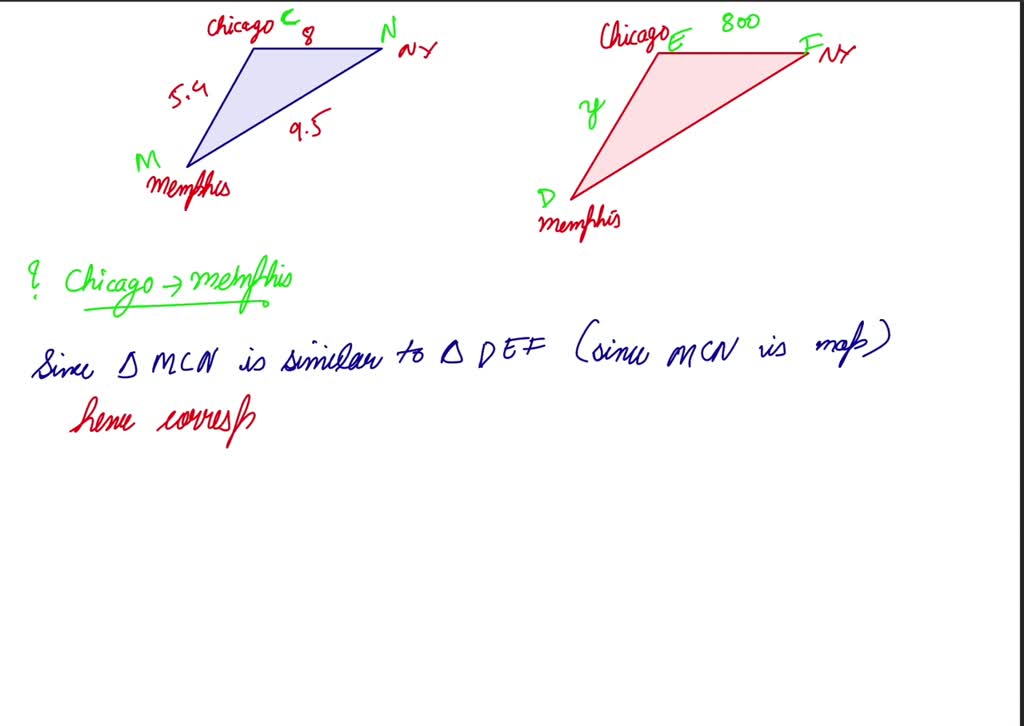 Chicago C 8 N NY
5.4
9.5
M
Memphis
Chicago E 800 F NY
y
D
Memphis
? Chicago → Memphis
Since Δ MCN is similar to Δ DEF (since MCN is map)
hence corresp